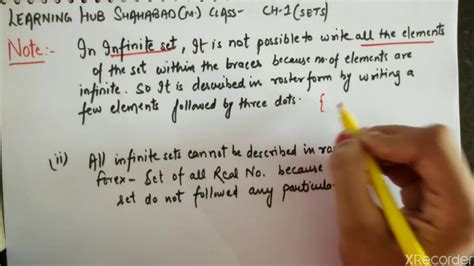 LEARNING HUB SHAHABAD(M) CLASS- CH-1(SETS)
Note:- In Infinite set, It is not possible to write all the elements
of the set within the braces because no. of elements are
infinite. So It is described in roster form by writing a
few elements followed by three dots. {
(ii) All infinite sets cannot be described in
forex- Set of all Real No. because
set do not followed any
XRecorder